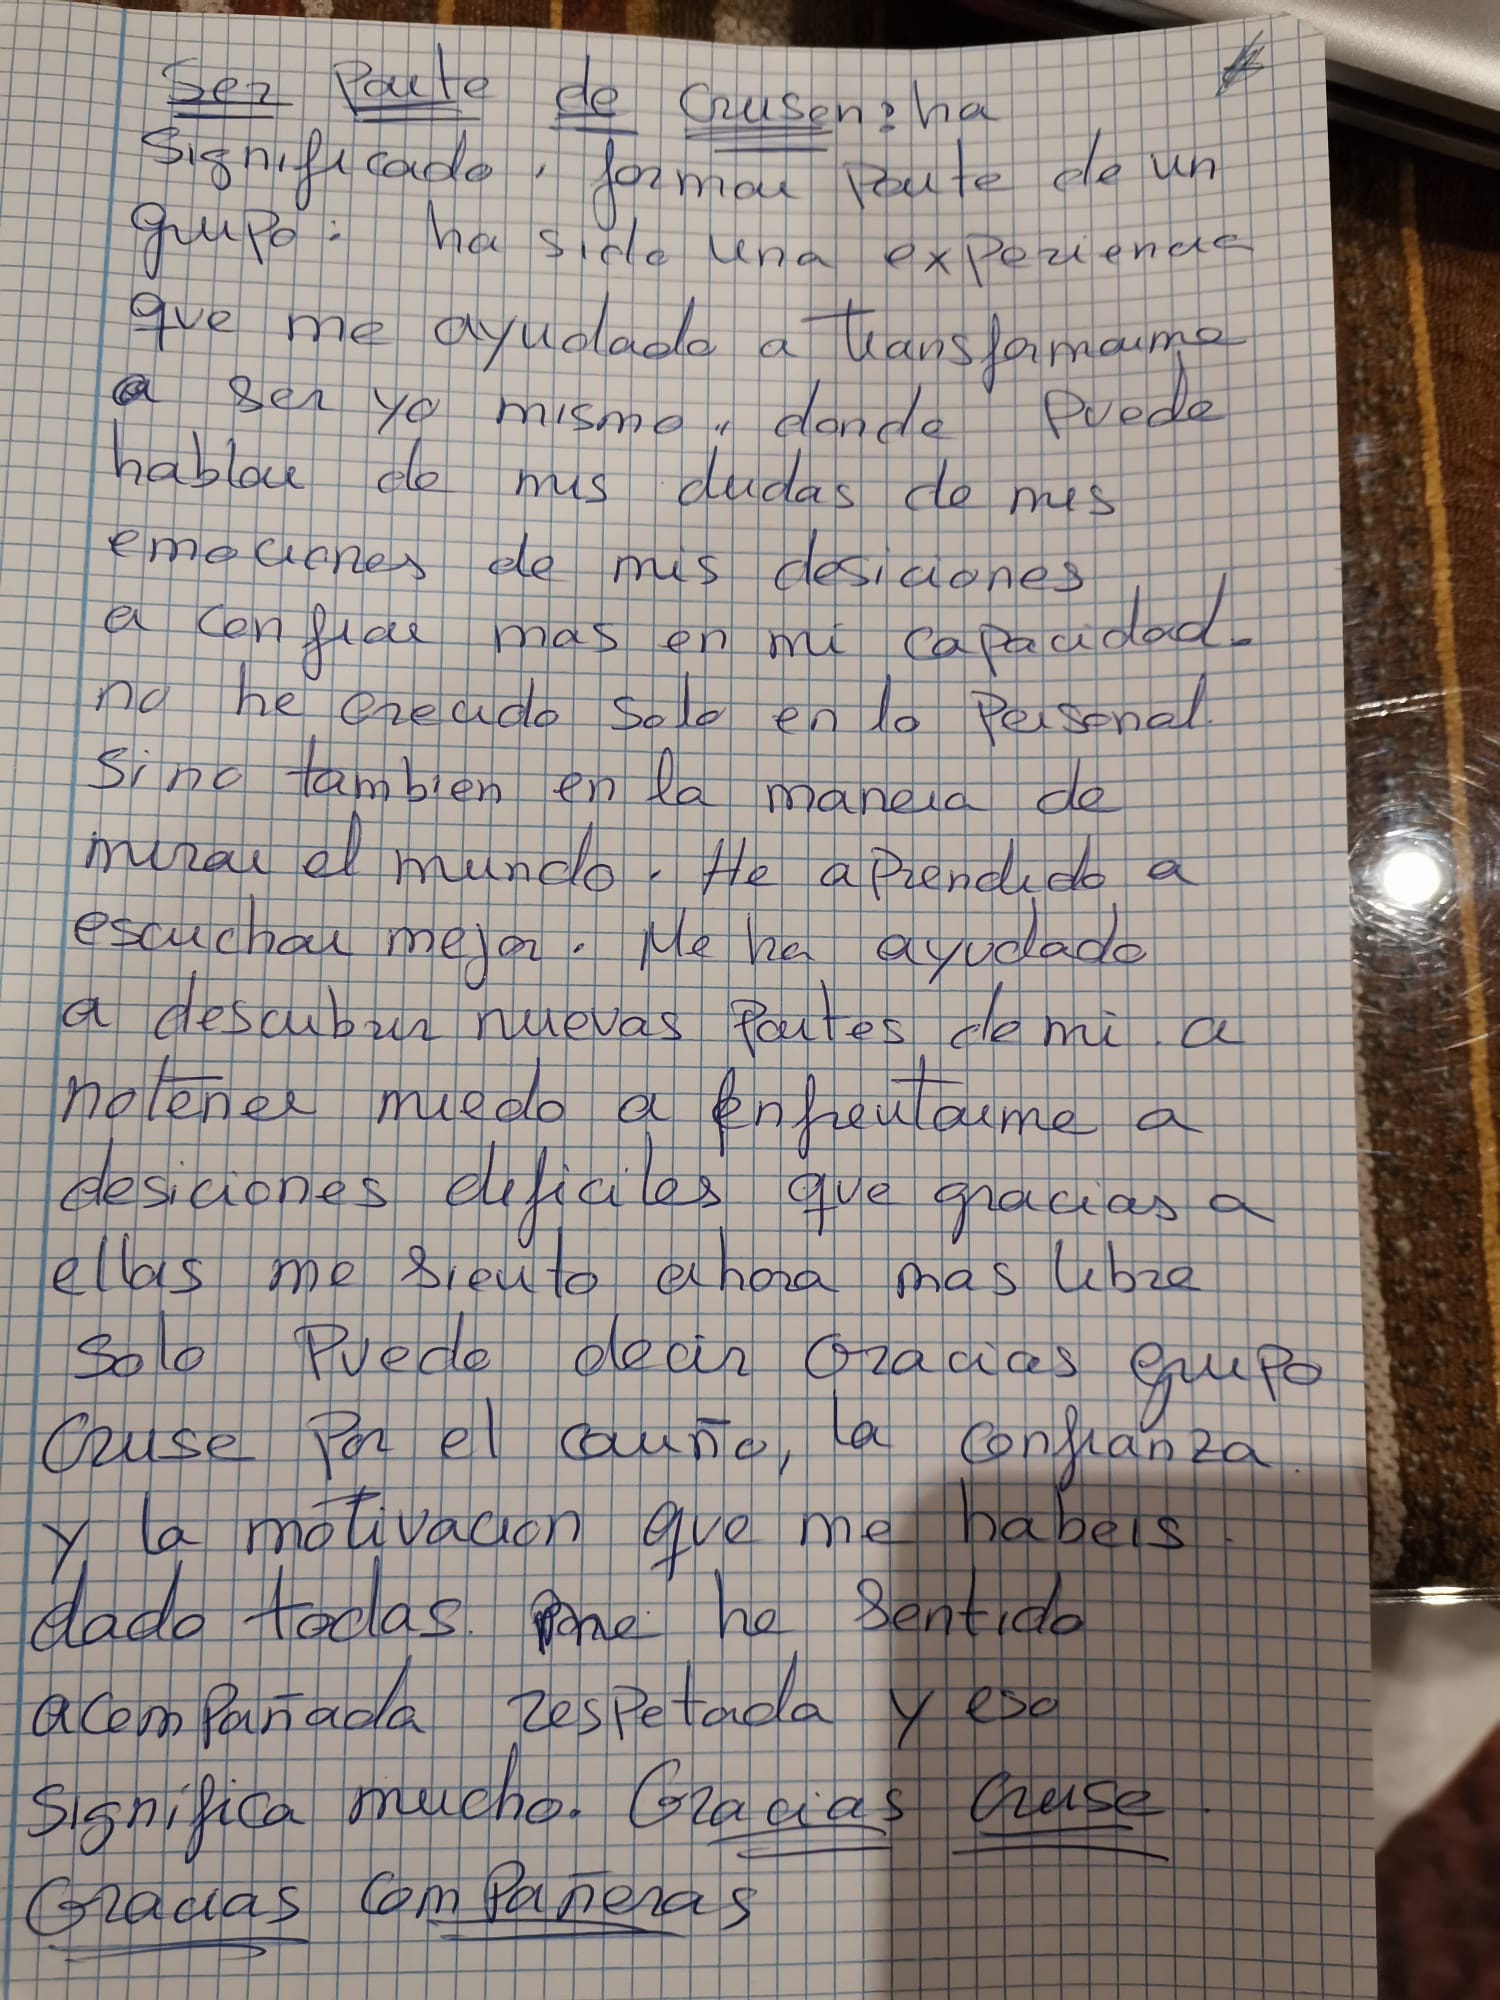 Ser Parte de Crusen: ha
significado, formar parte de un
grupo: ha sido una experiencia
que me ayudado a transformarme
a ser yo mismo, donde Puede
hablar de mis dudas de mis
emociones de mis desiciones
a confiar mas en mi capacidad.
no he crecido solo en lo Personal.
sino tambien en la manera de
mirar el mundo. He aprendido a
escuchar mejor. Me ha ayudado
a descubrir nuevas Partes de mi. a
no tener miedo a enfrentarme a
desiciones dificiles que gracias a
ellas me siento ahora mas libre
solo Puedo decir Gracias grupo
Cruse Por el cariño, la confianza
y la motivacion que me habeis.
dado todas. me he sentido
acompañada respetada y eso
significa mucho. Gracias Cruse.
Gracias compañeras